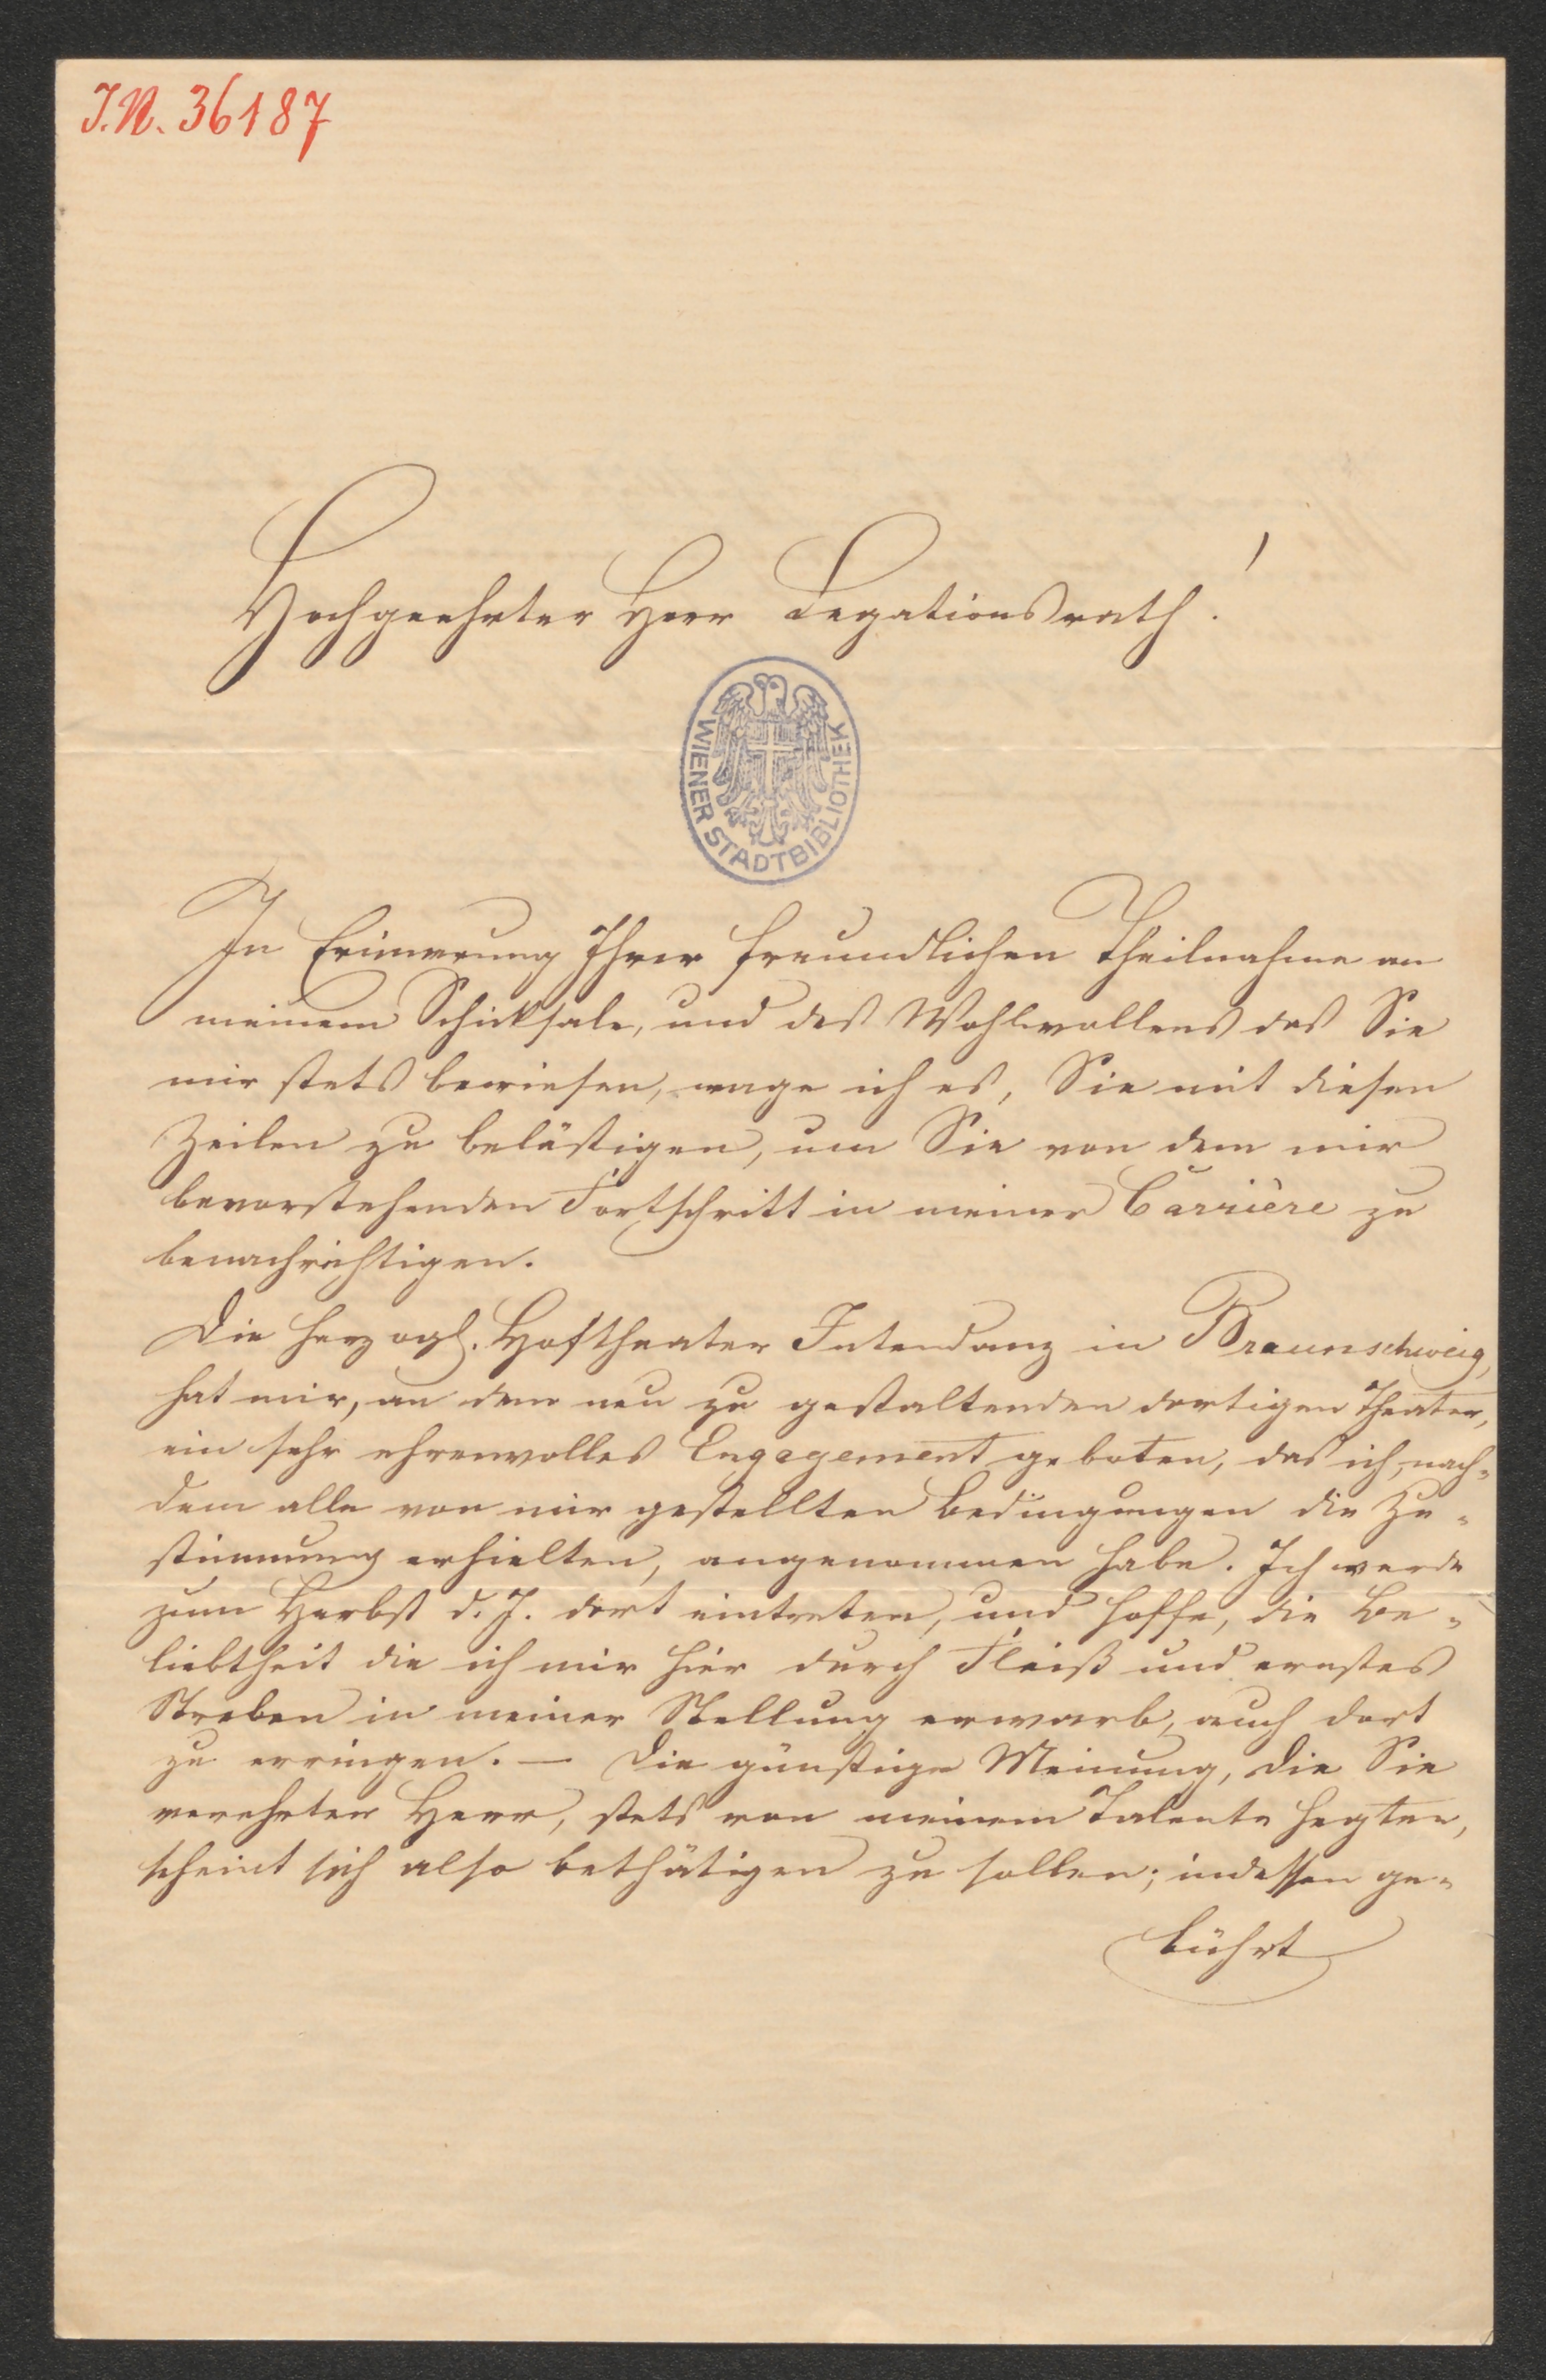 J.N. 36187
Hochgeehrter Herr Legationsrath!
WIENER STADTBIBLIOTHEK
In Erinnerung Ihrer freundlichen Theilnahme an
meinem Schicksale, und des Wohlwollens das Sie
mir stets bewiesen, wage ich es, Sie mit diesen
Zeilen zu belästigen, um Sie von dem mir
bevorstehenden Fortschritt in meiner Carrière zu
benachrichtigen.
Die herzogl. Hoftheater Intendanz in Braunschweig,
hat mir, an dem neu zu gestaltenden dortigen Theater,
ein sehr ehrenvolles Engagement geboten, das ich, nach-
dem alle von mir gestellten Bedingungen die Zu-
stimmung erhielten, angenommen habe. Ich werde
zum Herbst d. J. dort eintreten, und hoffe, die Be-
liebtheit die ich mir hier durch Fleiß und ernstes
Streben in meiner Stellung erwarb, auch dort
zu erringen. — Die günstige Meinung, die Sie
verehrter Herr, stets von meinem Talente hegten,
scheint sich also bethätigen zu sollen; indessen ge-
bührt